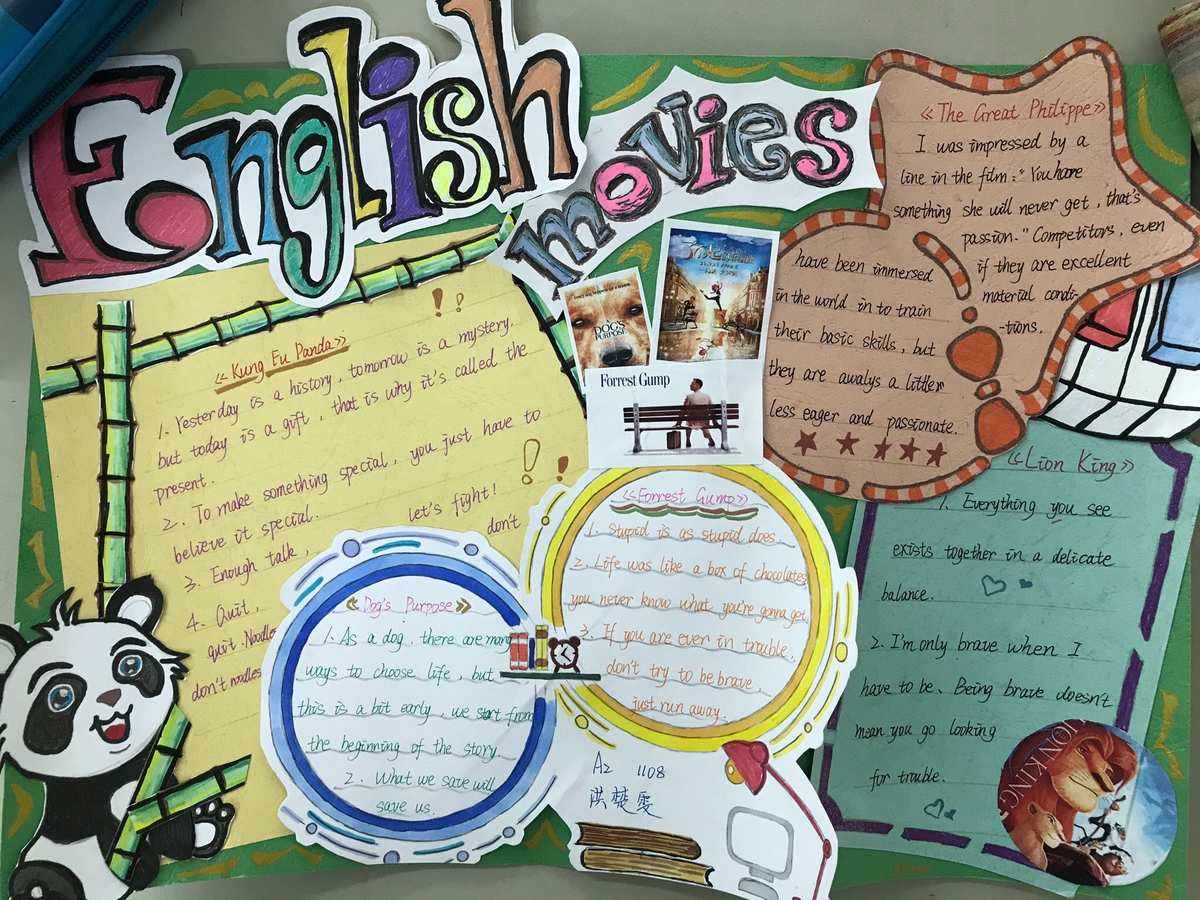 English
movies
《Kung Fu Panda》
1. Yesterday is a history, tomorrow is a mystery.
but today is a gift, that is why it's called the
present.
2. To make something special, you just have to
believe it special.
3. Enough talk, let's fight!
4. Quit, don't
quit. Noodles
don't noodles
DOG'S
PURPOSE
Forrest Gump
《The Great Philippe》
I was impressed by a
line in the film: "You have
something she will never get, that's
passion." Competitors, even
if they are excellent
material condi-
-tions.
have been immersed
in the world in to train
their basic skills, but
they are awalys a littler
less eager and passionate.
《Dog's Purpose》
1. As a dog, there are many
ways to choose life, but
this is a bit early, we start from
the beginning of the story.
2. What we save will
save us.
《Forrest Gump》
1. Stupid is as stupid does.
2. Life was like a box of chocolates
you never know what you're gonna get.
3. If you are ever in trouble,
don't try to be brave,
just run away.
A2 1108
洪楚雯
《Lion King》
1. Everything you see
exists together in a delicate
balance.
2. I'm only brave when I
have to be. Being brave doesn't
mean you go looking
for trouble.
LION KING